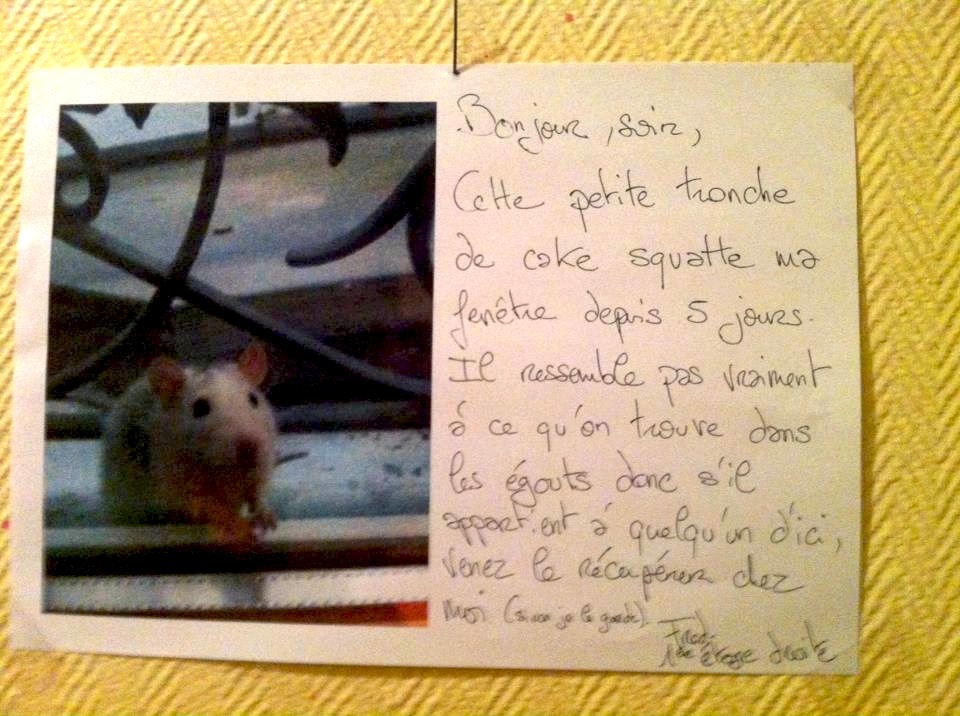 Bonjour, soir,
Cette petite tronche
de cake squatte ma
fenêtre depuis 5 jours.
Il ressemble pas vraiment
à ce qu'on trouve dans
les égouts donc s'il
appartient à quelqu'un d'ici,
venez le récupérer chez
moi (sinon je le garde).
Fred
1er étage droite